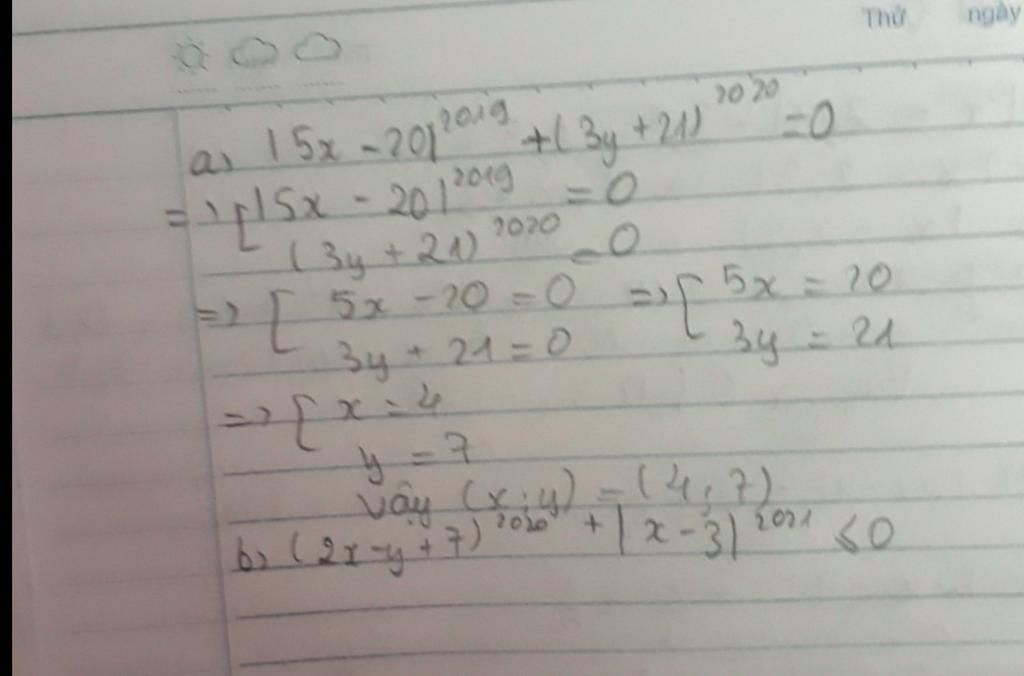 Thứ ngày
a, |5x - 20|^2019 + (3y + 21)^2020 = 0
=> [ |5x - 20|^2019 = 0
(3y + 21)^2020 = 0
=> [ 5x - 20 = 0 => [ 5x = 20
3y + 21 = 0 3y = 21
=> [ x = 4
y = 7
vậy (x; y) = (4; 7)
b, (2x - y + 7)^2020 + |x - 3|^2021 ≤ 0